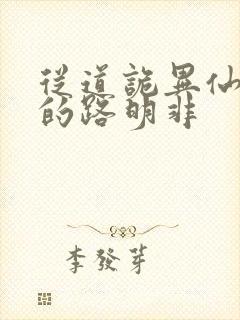 從道詭異仙
的路明非
李發芽